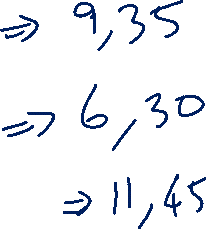 ⇒ 9,35
⇒ 6,30
⇒ 11,45